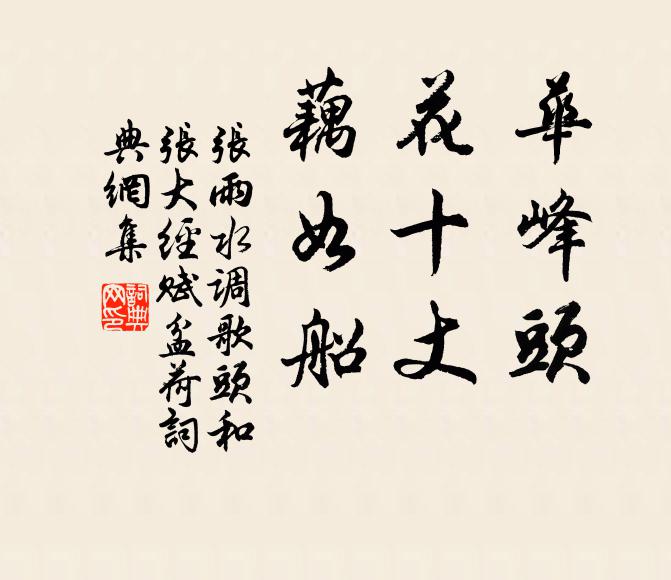 華峰頭
花十丈
藕如船
張雨水调歌頭和
張大經賦盆荷詞
典網集
詞典
网印